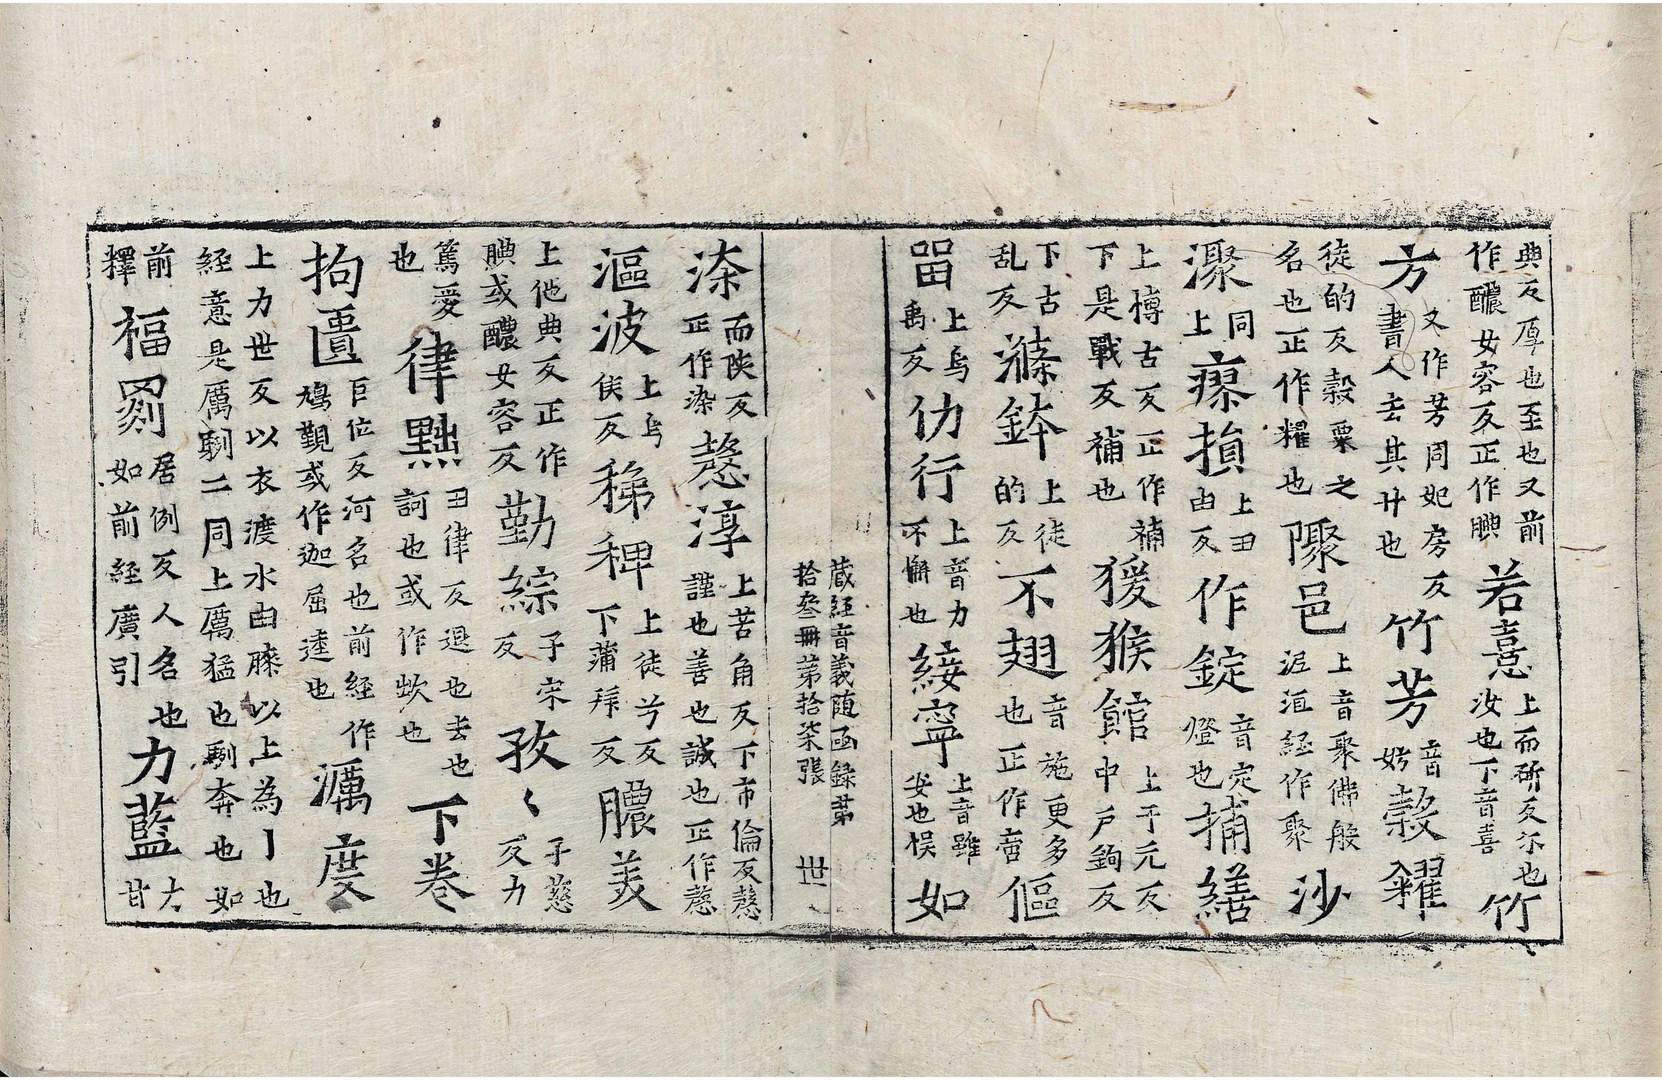 典反厚也至也又前作醲女容反正作腆若憙上而斫反尒也汝也下音喜竹
方又作芳同妃房反書人去其廾也竹芳音妨穀糴
徒的反穀粟之名也正作糴也隟邑上音聚佛般泥洹経作聚沙
同上損上丑由反作錠音定燈也捕繕
上樽古反正作補下是戰反補也猨猴館上于元反中戶鉤反
下古乱反滌鉢上徒的反不翅音施更多也正作啻傴
畱上烏禹反仂行上音力不懈也綏寧上音雖安也悮如
蔵経音義随函錄第拾叁冊第拾柒張 世
而陝反正作染愨淳上苦角反下市倫反愨謹也善也誠也正作愨
漚波上烏侯反稊稗上徒兮反下蒲拜反膿美
上他典反正作腆或醲女容反勤綜子宋反孜〻子慈反力
篤愛也律黜丑律反退也去也訶也或作欪也下卷
拘匱巨位反河名也前経作鳩觀或作迦屈逵也濿度
上力世反以衣渡水由膝以上為丨也経意是厲二同上厲猛也奔也如
前釋福罽居例反人名也如前経廣引力藍大甘